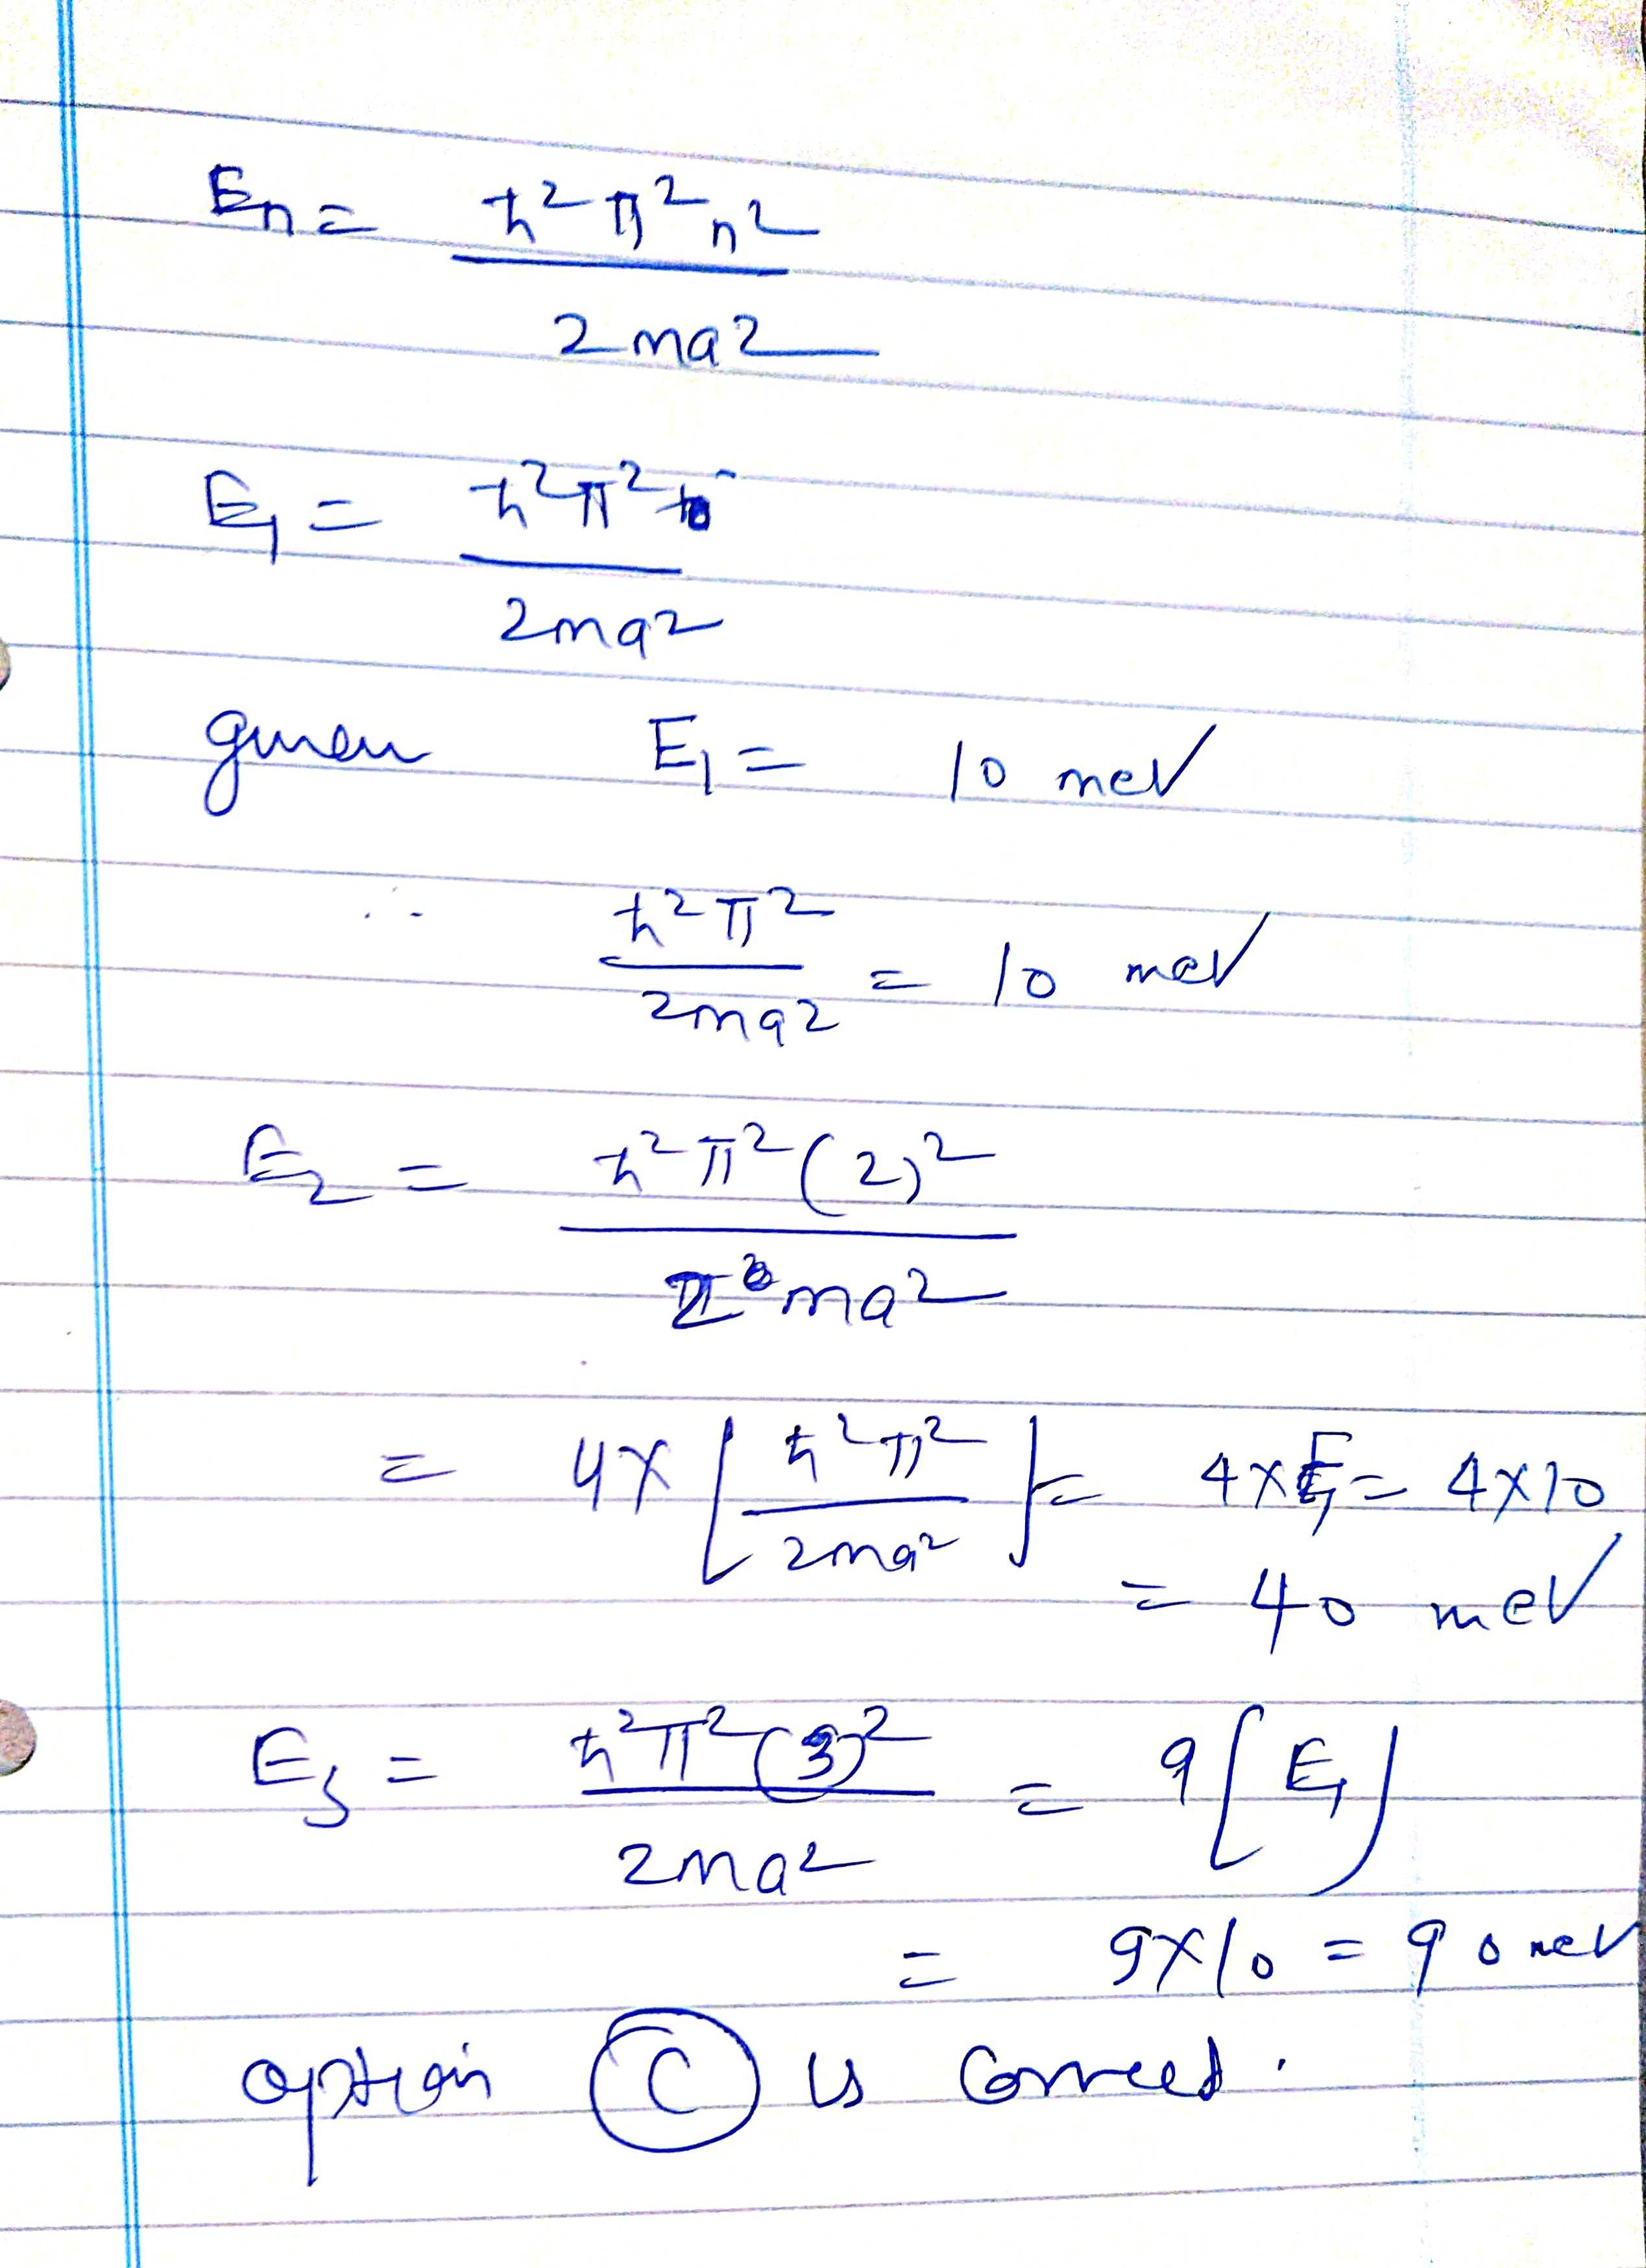 En = ħ²π²n²
2ma²
E₁ = ħ²π²
2ma²
given E₁ = 10 meV
∴ ħ²π²
2ma² = 10 meV
E₂ = ħ²π²(2)²
2ma²
= 4x [ħ²π² / 2ma²] = 4xE₁ = 4x10
= 40 meV
E₃ = ħ²π²(3)² = 9[E₁]
2ma²
= 9x10 = 90 meV
option C is correct.